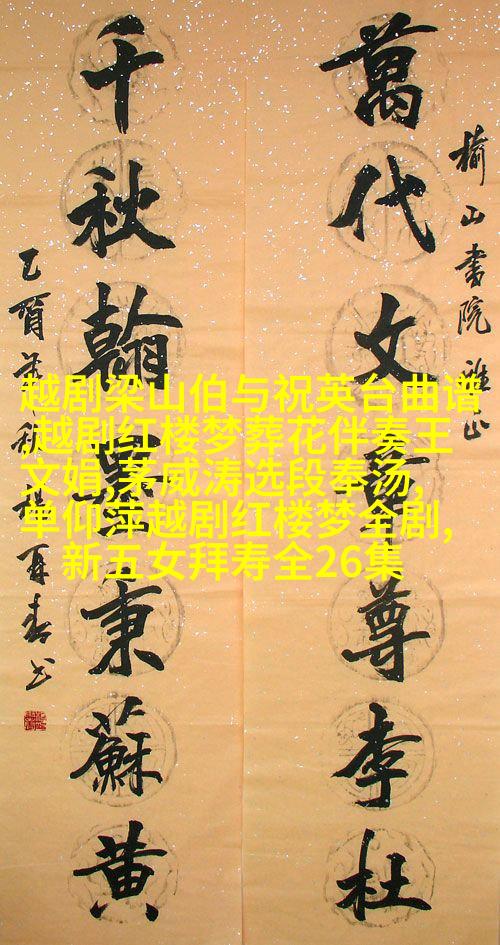 榆山書院雅正
萬代文章尊李杜
千秋翰墨秉蘇黄
乙酉秋楊再春书
越剧梁山伯与祝英台曲谱
,越剧红楼梦葬花伴奏王
文娟,茅威涛选段奉汤,
单仰萍越剧红楼梦全剧,
新五女拜寿全26集